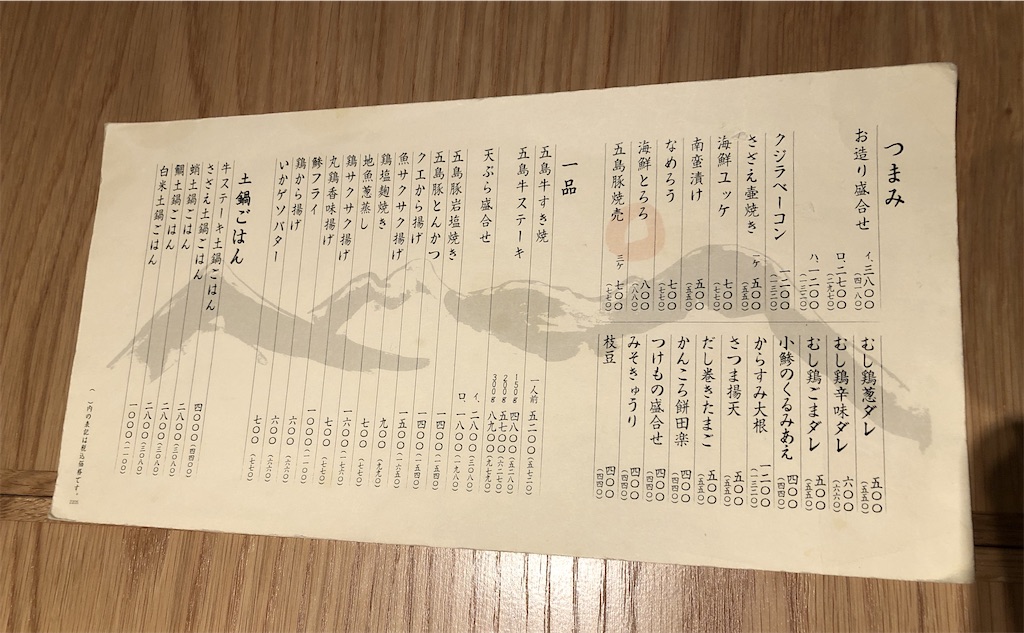 つまみ
お造り盛合せ イ、三八〇〇(四一八〇)
ロ、二七〇〇(二九七〇)
ハ、一二〇〇(一三二〇)
クジラベーコン 一二〇〇(一三二〇)
さざえ壺焼き 一ヶ 五〇〇(五五〇)
海鮮ユッケ 七〇〇(七七〇)
南蛮漬け 五〇〇(五五〇)
なめろう 七〇〇(七七〇)
海鮮とろろ 八〇〇(八八〇)
五島豚焼売 三ヶ 七〇〇(七七〇)
むし鶏葱ダレ 五〇〇(五五〇)
むし鶏辛味ダレ 六〇〇(六六〇)
むし鶏ごまダレ 五〇〇(五五〇)
小鯵のくるみあえ 四〇〇(四四〇)
からすみ大根 一二〇〇(一三二〇)
さつま揚天 五〇〇(五五〇)
だし巻きたまご 五〇〇(五五〇)
かんころ餅田楽 四〇〇(四四〇)
つけもの盛合せ 四〇〇(四四〇)
みそきゅうり 四〇〇(四四〇)
枝豆 四〇〇(四四〇)
一品
五島牛すき焼 一人前 五二〇〇(五七二〇)
五島牛ステーキ 150g 四八〇〇(五二八〇)
200g 五七〇〇(六二七〇)
300g 八九〇〇(九七九〇)
天ぷら盛合せ イ、二八〇〇(三〇八〇)
ロ、一八〇〇(一九八〇)
五島豚岩塩焼き 一四〇〇(一五四〇)
五島豚とんかつ 一四〇〇(一五四〇)
クエから揚げ 一五〇〇(一六五〇)
魚サクサク揚げ 九〇〇(九九〇)
鶏塩麹焼き 七〇〇(七七〇)
地魚葱蒸し 一六〇〇(一七六〇)
鶏サクサク揚げ 七〇〇(七七〇)
丸鶏香味揚げ 一〇〇〇(一一〇〇)
鯵フライ 六〇〇(六六〇)
鶏から揚げ 六〇〇(六六〇)
いかゲソバター 七〇〇(七七〇)
土鍋ごはん
牛ステーキ土鍋ごはん 四〇〇〇(四四〇〇)
さざえ土鍋ごはん 二八〇〇(三〇八〇)
蛸土鍋ごはん 二八〇〇(三〇八〇)
鯛土鍋ごはん 二八〇〇(三〇八〇)
白米土鍋ごはん 一〇〇〇(一一〇〇)
( )内の表記は税込価格です。